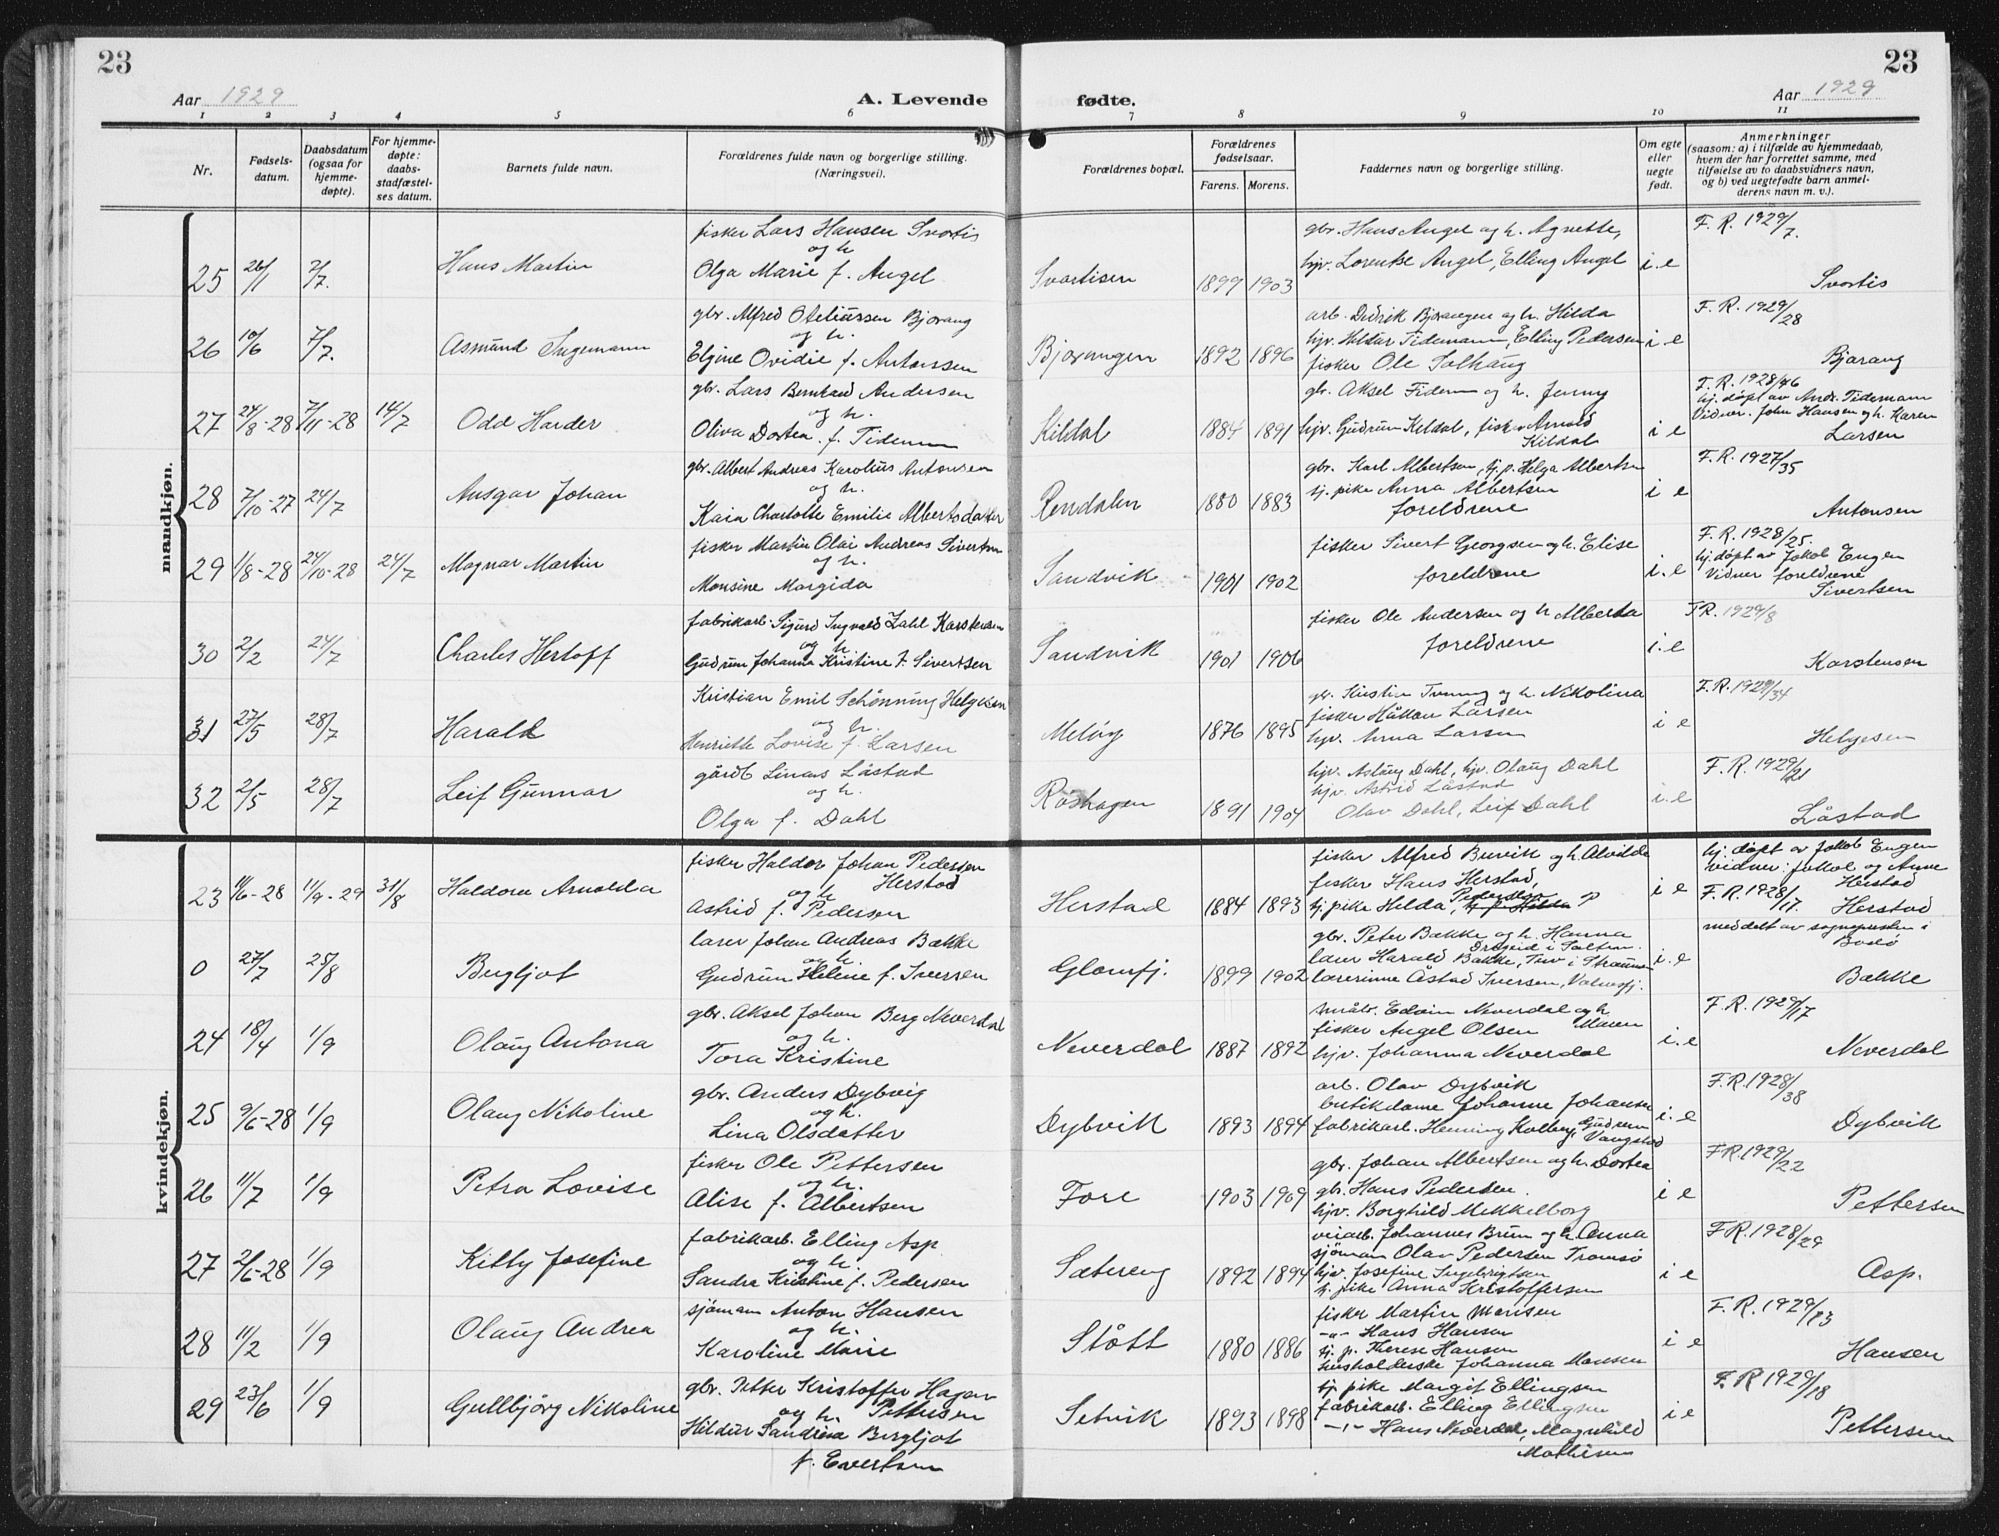 23
23
Aar 1929
A. Levende fødte.
Aar 1929
1 2 3 4 5 6 7 8 9 10 11
Nr.
Fødsels-
datum.
Daabsdatum
(ogsaa for
hjemme-
døpte).
For hjemme-
døpte:
daabs-
stadfæstel-
ses datum.
Barnets fulde navn.
Forældrenes fulde navn og borgerlige stilling.
(Næringsvei).
Forældrenes bopæl.
Forældrenes
fødselsaar.
Farens. Morens.
Faddernes navn og borgerlige stilling.
Om egte
eller
uegte
født.
Anmerkninger
(saasom: a) i tilfælde av hjemmedaab,
hvem der har forrettet samme, med
tilføielse av to daabsvidners navn,
og b) ved uegtefødte barn anmel-
derens navn m. v.).
mandkjøn.
fisker Lars Hansen Svartis gbr. Hans Angel og h. Agnette, F. R. 1929/7.
og h
25 26/1 7/7. Hans Martin Olga Marie f. Angel Svartisen 1899 1903 hjv. Lorentse Angel, Elling Angel i.e Svartis
gbr. Alfred Oteliussen Bjørang arb. Didrik Bjørangen og h. Hilda F. R. 1929/28
og h.
26 10/6 7/7. Asmund Ingemann Elgine Ovidie f. Antonsen Bjørangen 1892 1896 hjv. Hildur Tidemann, Elling Pedersen i e Bjørang
fisker Ole Solhaug
gbr. Lars Bernhard Andersen gb. Aksel Fidem og h. Jenny F. R. 1928/46
og h. hj. døpt av Andr. Tidemann
27 24/8-28 7/11-28 14/7 Odd Harder Oliva Dortea f. Tidemann Kildal 1884 1891 hjv. Gudrun Kildal, fisker Arnold Kildal i e Vidner: John Hansen og h. Karen
Larsen
gbr. Albert Andreas Karolius Antonsen gbr. Karl Albertsen, tj. p. Helga Albertsen F. R. 1927/35
og h.
28 7/10-27 24/7 Ansgar Johan Kaia Charlotte Emilie Albertsdatter Rendalen 1880 1883 tj. pike Anna Albertsen i e Antonsen
foreldrene
fisker Martin Olai Andreas Sivertsen fisker Sivert Georgsen og h. Elise F. R. 1928/25.
og h. hj. døpt av Jakob Engen
29 1/8-28 24/10-28 24/7 Magnar Martin Monsine Margida Sandvik 1901 1902 foreldrene i.e Vidner foreldrene
Sivertsen
fabrikarb. Sigurd Ingvald Zahl Karstensen fisker Ole Andersen og h Alberta F.R. 1929/8
og h.
30 2/2 24/7 Charles Hertoff Gudrun Johanna Kristine f. Sivertsen Sandvik 1901 1906 foreldrene i.e Karstensen
Kristian Emil Schønning Helgesen gb. Kristin og h. Nikolina F. R. 1929/34
og h. fisker Håkon Larsen
31 27/5 28/7 Harald Henriette Lovise f. Larsen Meløy 1876 1895 hjv. Anna Larsen i e Helgesen
gårdb Linars Låstad hjv. Aslaug Dahl, hjv. Olaug Dahl F. R. 1929/21
og h. hjv. Astrid Låstad
32 2/5 28/7 Leif Gunnar Olga f. Dahl Røshagen 1891 1904 Olav Dahl, Leif Dahl i.e Låstad
kvindekjøn.
fisker Haldor Johan Pedersen Herstad fisker Alfred Burvik og h. Alvilde hj. døpt av Jakob Engen
og h fisker Hans Herstad, vidner: Jakob og Anne Herstad
23 11/6-28 11/9-29 31/8 Haldora Arnolda Astrid f. Pedersen Herstad 1884 1893 tj. pike Hilda Pedersen i e F. R. 1928/17. Herstad
lærer Johan Andreas Bakke gbr. Peter Bakke og h. Hanna meddelt av sognepresten i Bodø
og h.
0 27/7 25/8 Bergljot Gudrun Helene f. Iversen Glomfj. 1899 1902 lærer Harald Bakke, i.e Bakke
lærerinne Åstad Iversen, Valnesfj.
gbr. Aksel Johan Berg Neverdal småbr. Edvin Neverdal og h. Maren F. R. 1929/17
og h. fisker Angel Olsen
24 18/4 1/9 Olaug Antona Tora Kristine Neverdal 1887 1892 hjv. Johanna Neverdal i.e Neverdal
gbr. Anders Dybvig arb. Olav Dybvik F. R. 1928/38
og h. butikdame Johanne Johansen
25 9/6-28 1/9 Olaug Nikoline Lina Olsdatter Dybvik 1893 1894 fabrikarb. Henning Kolberg, Gudrun Vangstad i.e Dybvik
fisker Ole Pettersen gbr. Johan Albertsen og h. Dortea F.R. 1929/22
og h. gbr. Hans Pedersen.
26 11/7 1/9 Petra Lovise Alise f. Albertsen Fore 1903 1909 hjv. Borghild Mikkelborg i e Pettersen
fabrikarb. Elling Asp veiarb. Johannes Brun og h. Anna F.R. 1928/29
og h. sjømann Olav Pedersen Tromsø
27 2/6-28 1/9 Kitty Josefine Sandra Kristine f. Pedersen Sætereng 1892 1894 hjv. Josefine Ingebrigtsen i e Asp.
tj. pike Anna Kristoffersen
sjømann Anton Hansen fisker Martin Monsen F. R. 1929/13
og h. -"- Hans Hansen
28 11/2 1/9 Olaug Andrea Karoline Marie Støtt 1880 1886 tj. p. Therese Hansen i e Hansen
husholderske Johanna Monsen
gbr. Petter Kristoffer Hagen Pettersen tj. pike Margit Ellingsen F. R 1929/18
og h. fabrikarb. Elling Ellingsen
29 23/6 1/9 Gullbjørg Nikoline Hildur Sandrea Bergljot Setvik 1893 1898 -"- Hans Neverdal, Magnhild Mathisen i e Pettersen
f. Evertsen